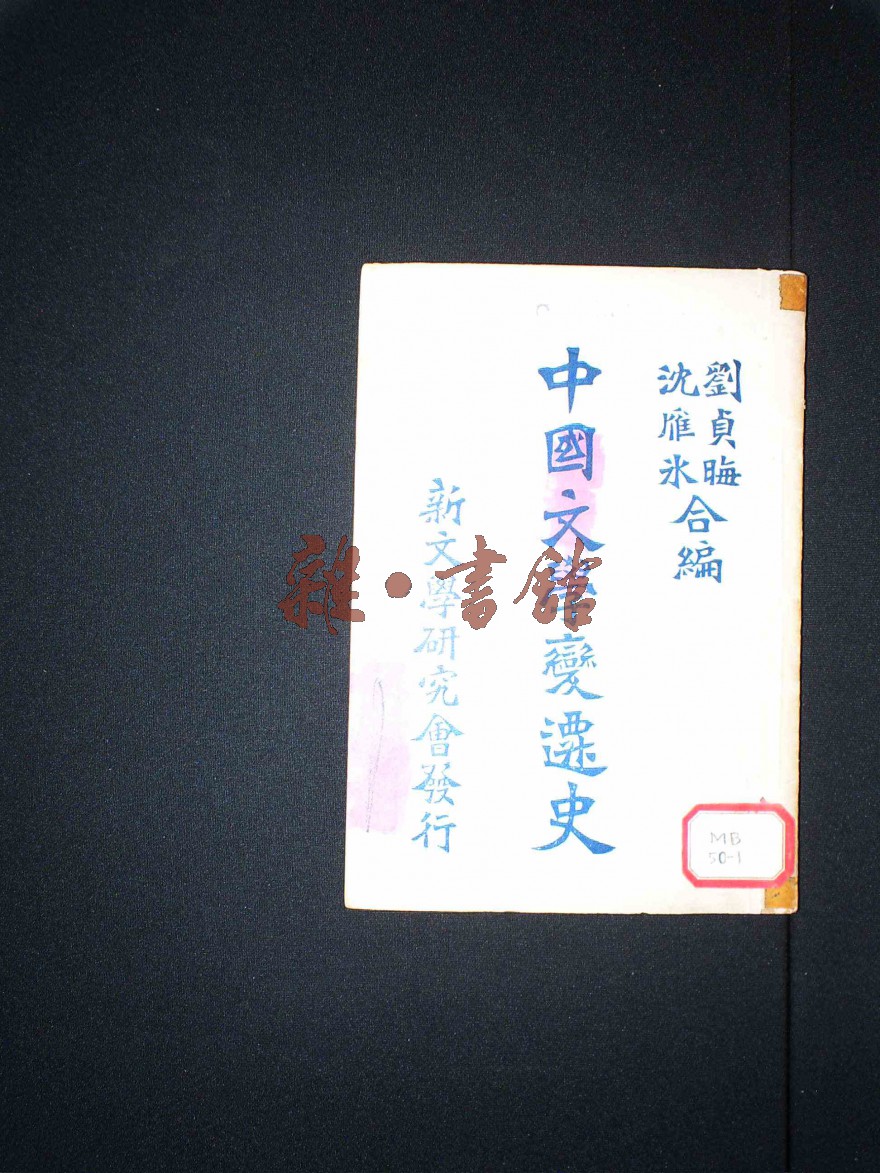 劉貞晦
沈雁氷
合編
中國文學變遷史
新文學研究會發行
MB
50-1
雜·書館